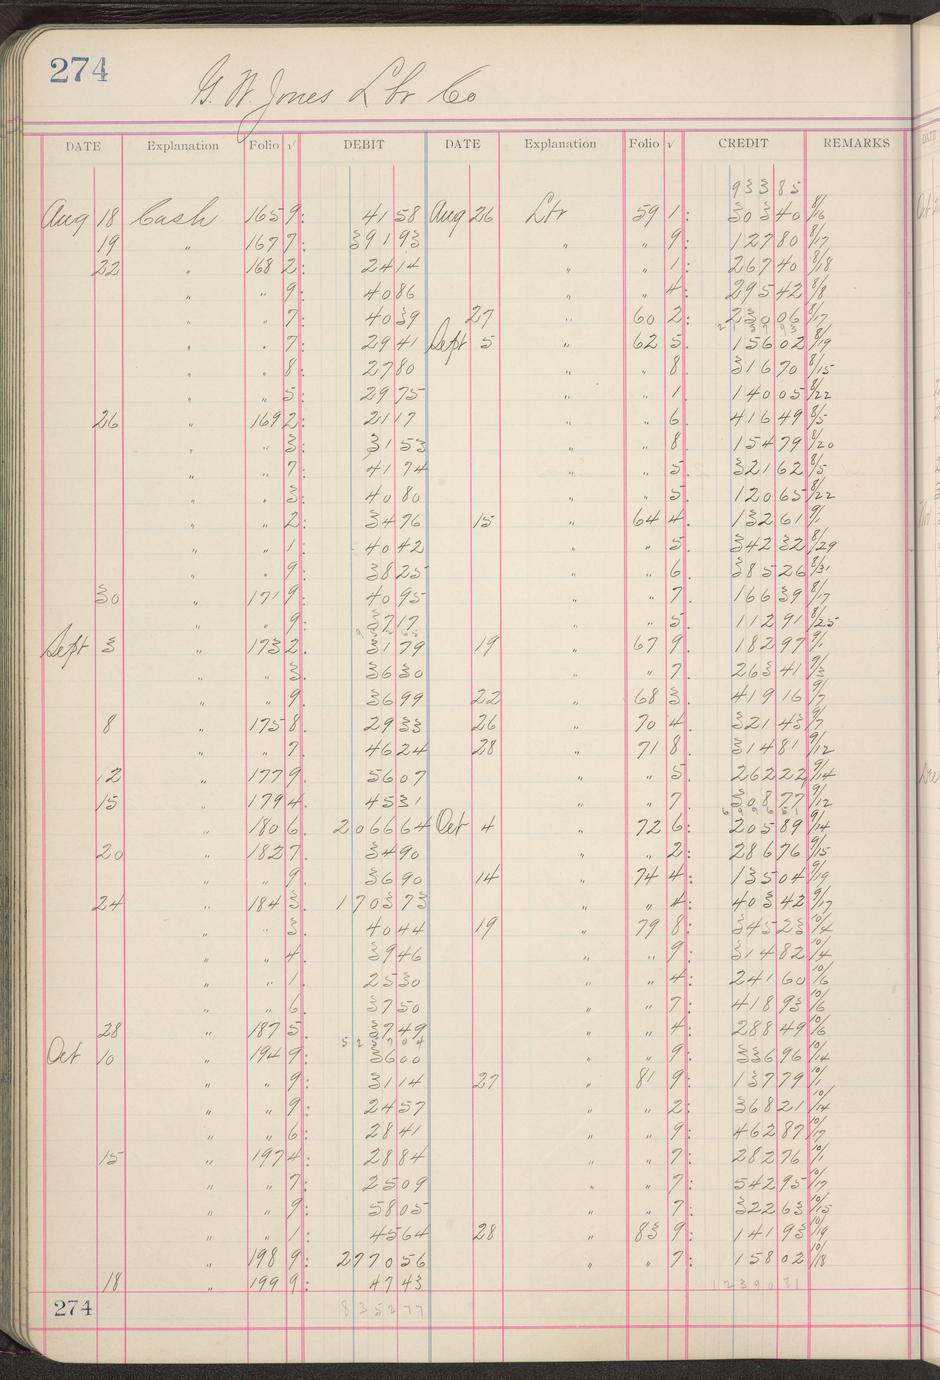 274
G. W. Jones Lbr Co
DATE Explanation Folio √ DEBIT DATE Explanation Folio √ CREDIT REMARKS
933 85
Aug 18 Cash 165 9: 41 58 Aug 26 Lbr 59 1: 303 40 8/16
19 " 167 7: 391 93 " " 9: 127 80 8/17
22 " 168 2: 24 14 " " 1: 267 40 8/18
" " 9: 40 86 " " 4: 295 42 8/8
" " 7: 40 39 27 " 60 2: 230 06 8/17
" " 7: 29 41 Sept 5 " 62 5. 156 02 8/19
" " 8: 27 80 " " 8. 316 70 8/15
" " 5: 29 75 " " 1. 140 05 8/22
26 " 169 2: 21 17 " " 6. 416 49 8/5
" " 3: 31 53 " " 8. 154 79 8/20
" " 7: 41 74 " " 5. 321 62 8/5
" " 3: 40 80 " " 5. 120 65 8/22
" " 2: 34 76 15 " 64 4. 132 61 9/1
" " 1: 40 42 " " 5. 342 32 8/29
" " 9: 38 25 " " 6. 385 26 8/31
30 " 171 9: 40 95 " " 7. 166 39 8/17
" " 9: 37 17 " " 5. 112 91 8/25
Sept 3 " 173 2. 31 79 19 " 67 9 182 97 9/1
" " 3. 36 30 " " 7. 263 41 9/3
" " 9. 36 99 22 " 68 3. 419 16 9/7
8 " 175 8. 29 33 26 " 70 4. 321 43 9/7
" " 7. 46 24 28 " 71 8. 314 81 9/12
12 " 177 9. 56 07 " " 5. 262 22 9/14
15 " 179 4. 45 31 " " 7. 308 77 9/12
" 180 6. 2066 64 Oct 4 " 72 6: 205 89 9/14
20 " 182 7. 34 90 " " 2: 286 76 9/15
" " 9. 36 90 14 " 74 4: 135 04 9/19
24 " 184 3. 1703 73 " " 4: 403 42 9/17
" " 3. 40 44 19 " 79 8: 345 23 10/4
" " 4. 39 46 " " 9: 314 82 10/4
" " 1. 25 30 " " 4: 241 60 10/6
" " 6. 37 50 " " 7: 418 93 10/6
28 " 187 5. 37 49 " " 4: 288 49 10/6
Oct 10 " 194 9: 36 00 " " 9: 336 96 10/14
" " 9: 31 14 27 " 81 9: 137 79 10/1
" " 9: 24 57 " " 2: 368 21 10/14
" " 6: 28 41 " " 9: 462 87 10/17
15 " 197 4: 28 84 " " 7: 282 76 10/1
" " 7: 25 09 " " 7: 542 95 10/17
" " 9: 58 05 " " 7: 322 63 10/15
" " 1: 45 64 28 " 83 9: 141 93 10/19
" 198 9: 2770 56 " " 7: 158 02 10/18
18 " 199 9: 47 43 12390 81
274 8352 77